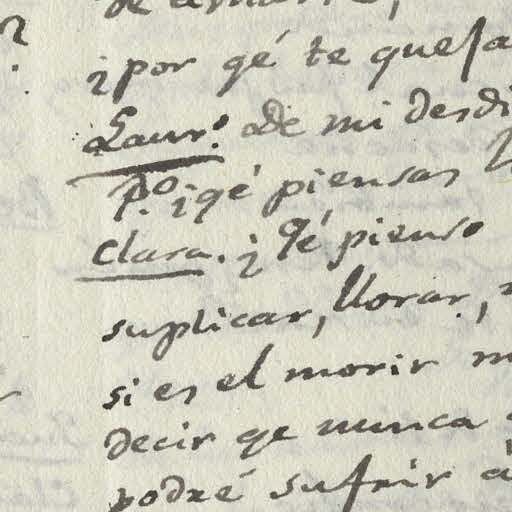 de amarte,
¿por qé te queja
Laurº. De mi desdi
Pº. ¿qé piensas
Clara. ¿Qé pienso
suplicar, llorar,
si es el morir m
decir qe nunca
podré sufrir á